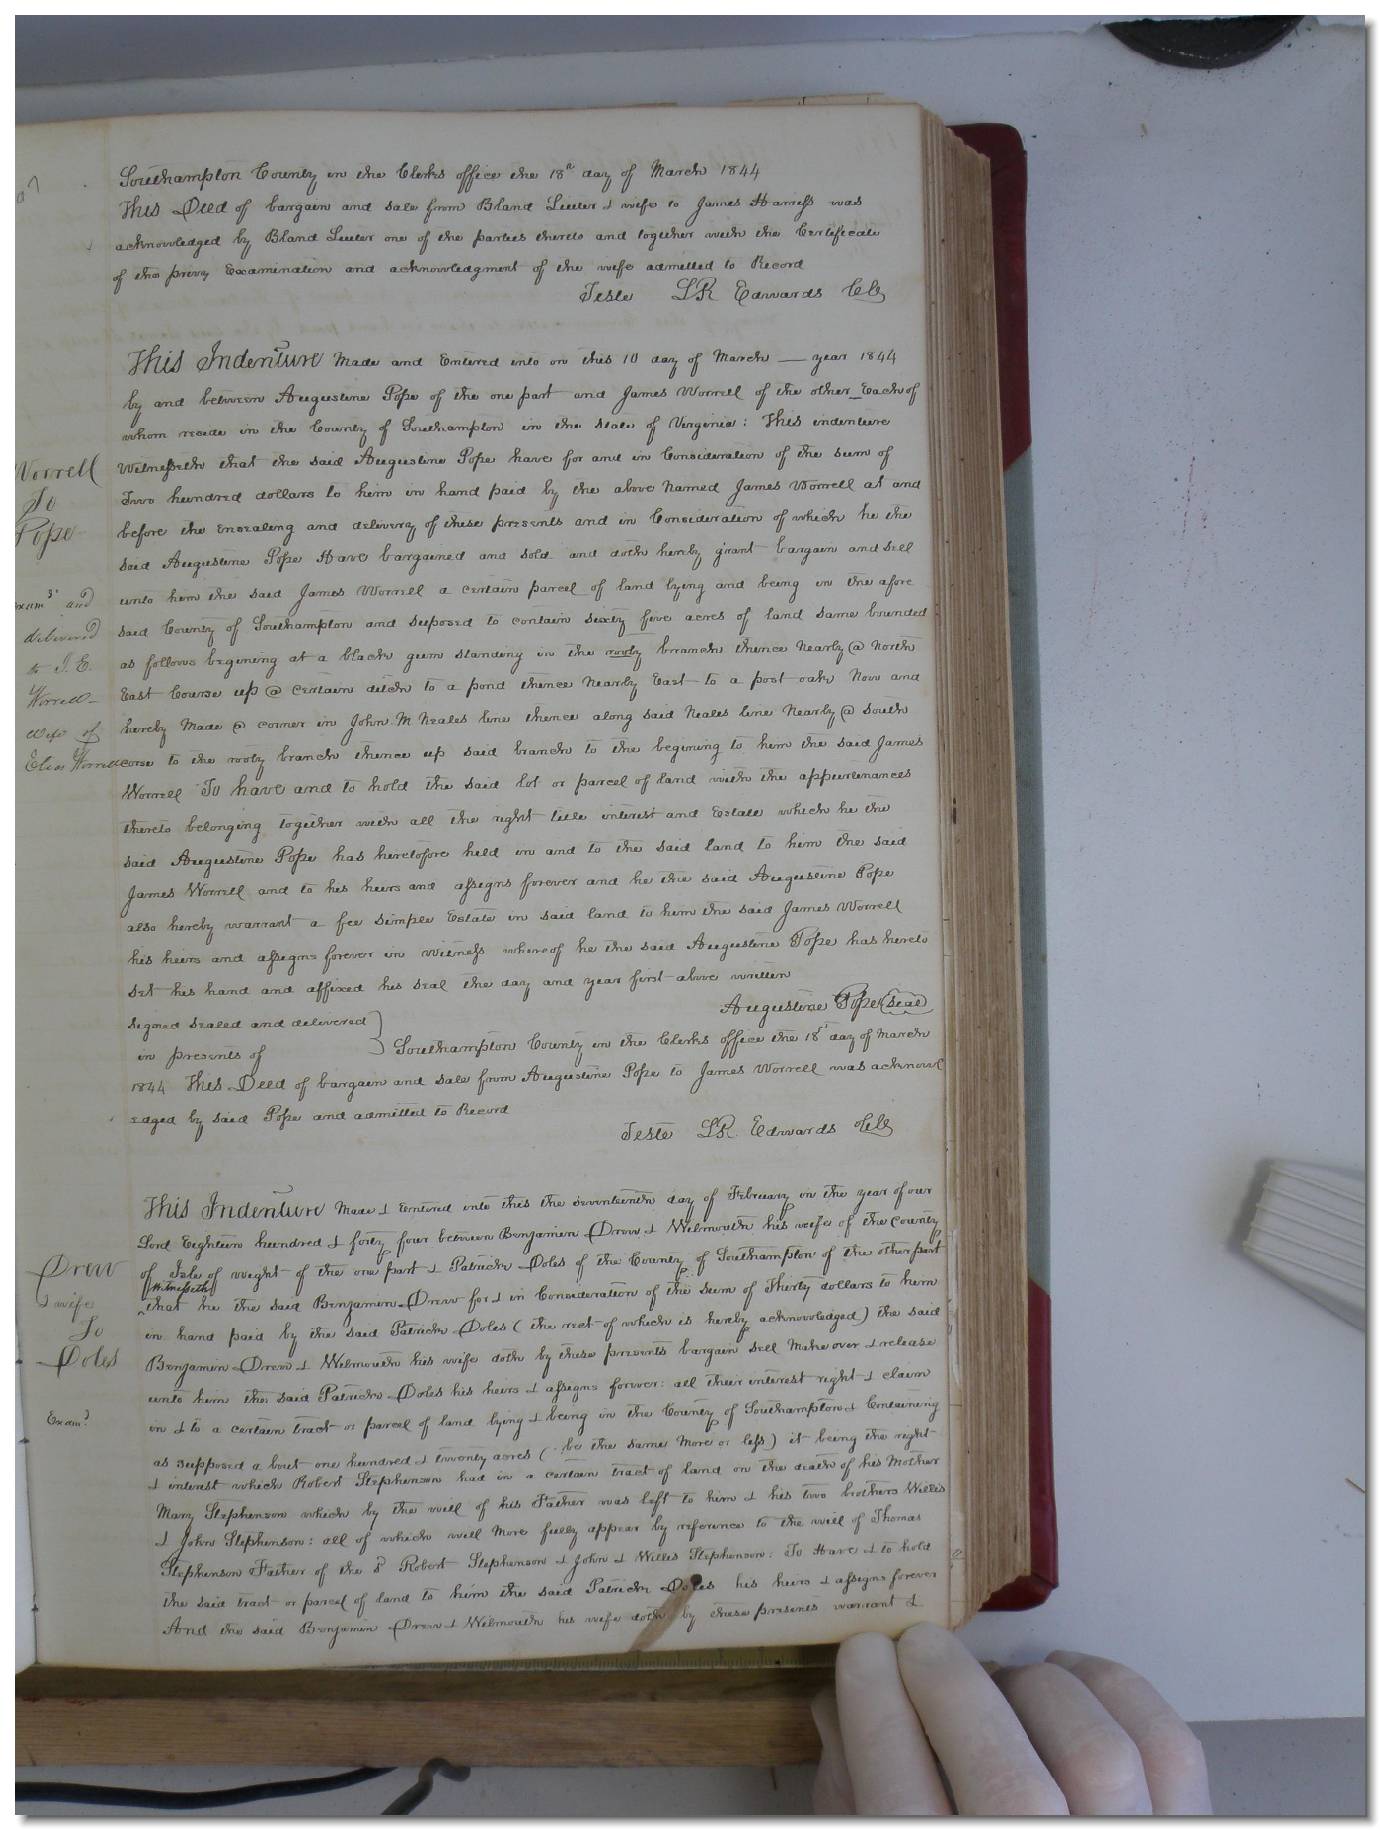 Southampton County in the Clerks office the 18th day of March 1844
This Deed of bargain and sale from Bland Luter & wife to James Harress was
acknowledged by Bland Luter one of the parties thereto and together with the Certificate
of the privy Examination and acknowledgment of the wife admitted to Record
Teste LR Edwards
This Indenture Made and Entered into on this 10 day of March — year 1844
by and between Augustine Pope of the one part and James Worrell of the other Each of
whom reside in the County of Southampton in the state of Virginia: This indenture
Witnesseth that the said Augustine Pope have for and in Consideration of the sum of
Two hundred dollars to him in hand paid by the above Named James Worrell at and
before the Ensealing and delivery of these presents and in Consideration of which he the
said Augustine Pope Have bargained and sold and doth hereby grant bargain and sell
unto him the said James Worrell a certain parcel of land lying and being in the afore
said County of Southampton and suposed to contain sixty five acres of land same bounded
as follows begining at a black gum standing in the rooty branch thence Nearly @ North
East Course up @ certain ditch to a pond thence Nearly East to a post oak Now and
hereby Made @ corner in John M Neales line thence along said Neales line Nearly @ south
corse to the rooty branch thence up said branch to the begining to him the said James
Worrell To have and to hold the said lot or parcel of land with the appurtenances
thereto belonging together with all the right title interist and Estate which he the
said Augustine Pope has heretofore held in and to the said land to him the said
James Worrell and to his heirs and assigns forever and he the said Augustine Pope
also hereby warrant a fee simple Estate in said land to him the said James Worrell
his heirs and assigns forever in witness whereof he the said Augustine Pope has hereto
set his hand and affixed his seal the day and year first above written
Augustine Pope seal
signed sealed and delivered
in presents of
Southampton County in the Clerks office the 18 day of March
1844 This Deed of bargain and sale from Augustine Pope to James Worrell was acknowl
edged by said Pope and admitted to Record
Teste LR. Edwards
Worrell
To
Pope
and
delivered
to J. E.
Worrell
wife of
Elias Worrell
This Indenture Made & Entered into this the seventeenth day of February in the year of our
Lord Eighteen hundred & forty four between Benjamin Drew & Wilmouth his wife of the County
of Isle of wight of the one part & Patrick Doles of the County of Southampton of the other part
Witnesseth
that he the said Benjamin Drew for & in Consideration of the sum of Thirty dollars to him
in hand paid by the said Patrick Doles (the rect of which is hereby acknowledged) the said
Benjamin Drew & Wilmouth his wife doth by these presents bargain sell Make over & release
unto him the said Patrick Doles his heirs & assigns forever: all their interest right & claim
in & to a certain tract or parcel of land lying & being in the County of Southampton & Containing
as supposed a bout one hundred & twenty acres (be the same More or less) it being the right
& interest which Robert Stephenson had in a certain tract of land on the death of his Mother
Mary Stephenson which by the will of his Father was left to him & his two brothers Willis
& John Stephenson: all of which will More fully appear by reference to the will of Thomas
Stephenson Father of the sd Robert Stephenson & John & Willis Stephenson: To Have & to hold
the said tract or parcel of land to him the said Patrick Doles his heirs & assigns forever
And the said Benjamin Drew & Wilmouth his wife doth by these presents warrant &
Drew
& wife
To
Doles
Examd